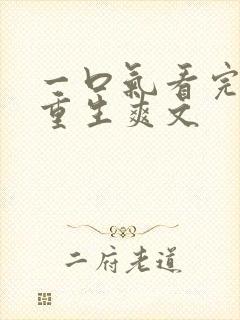 一口氣看完
重生爽文
二府老道